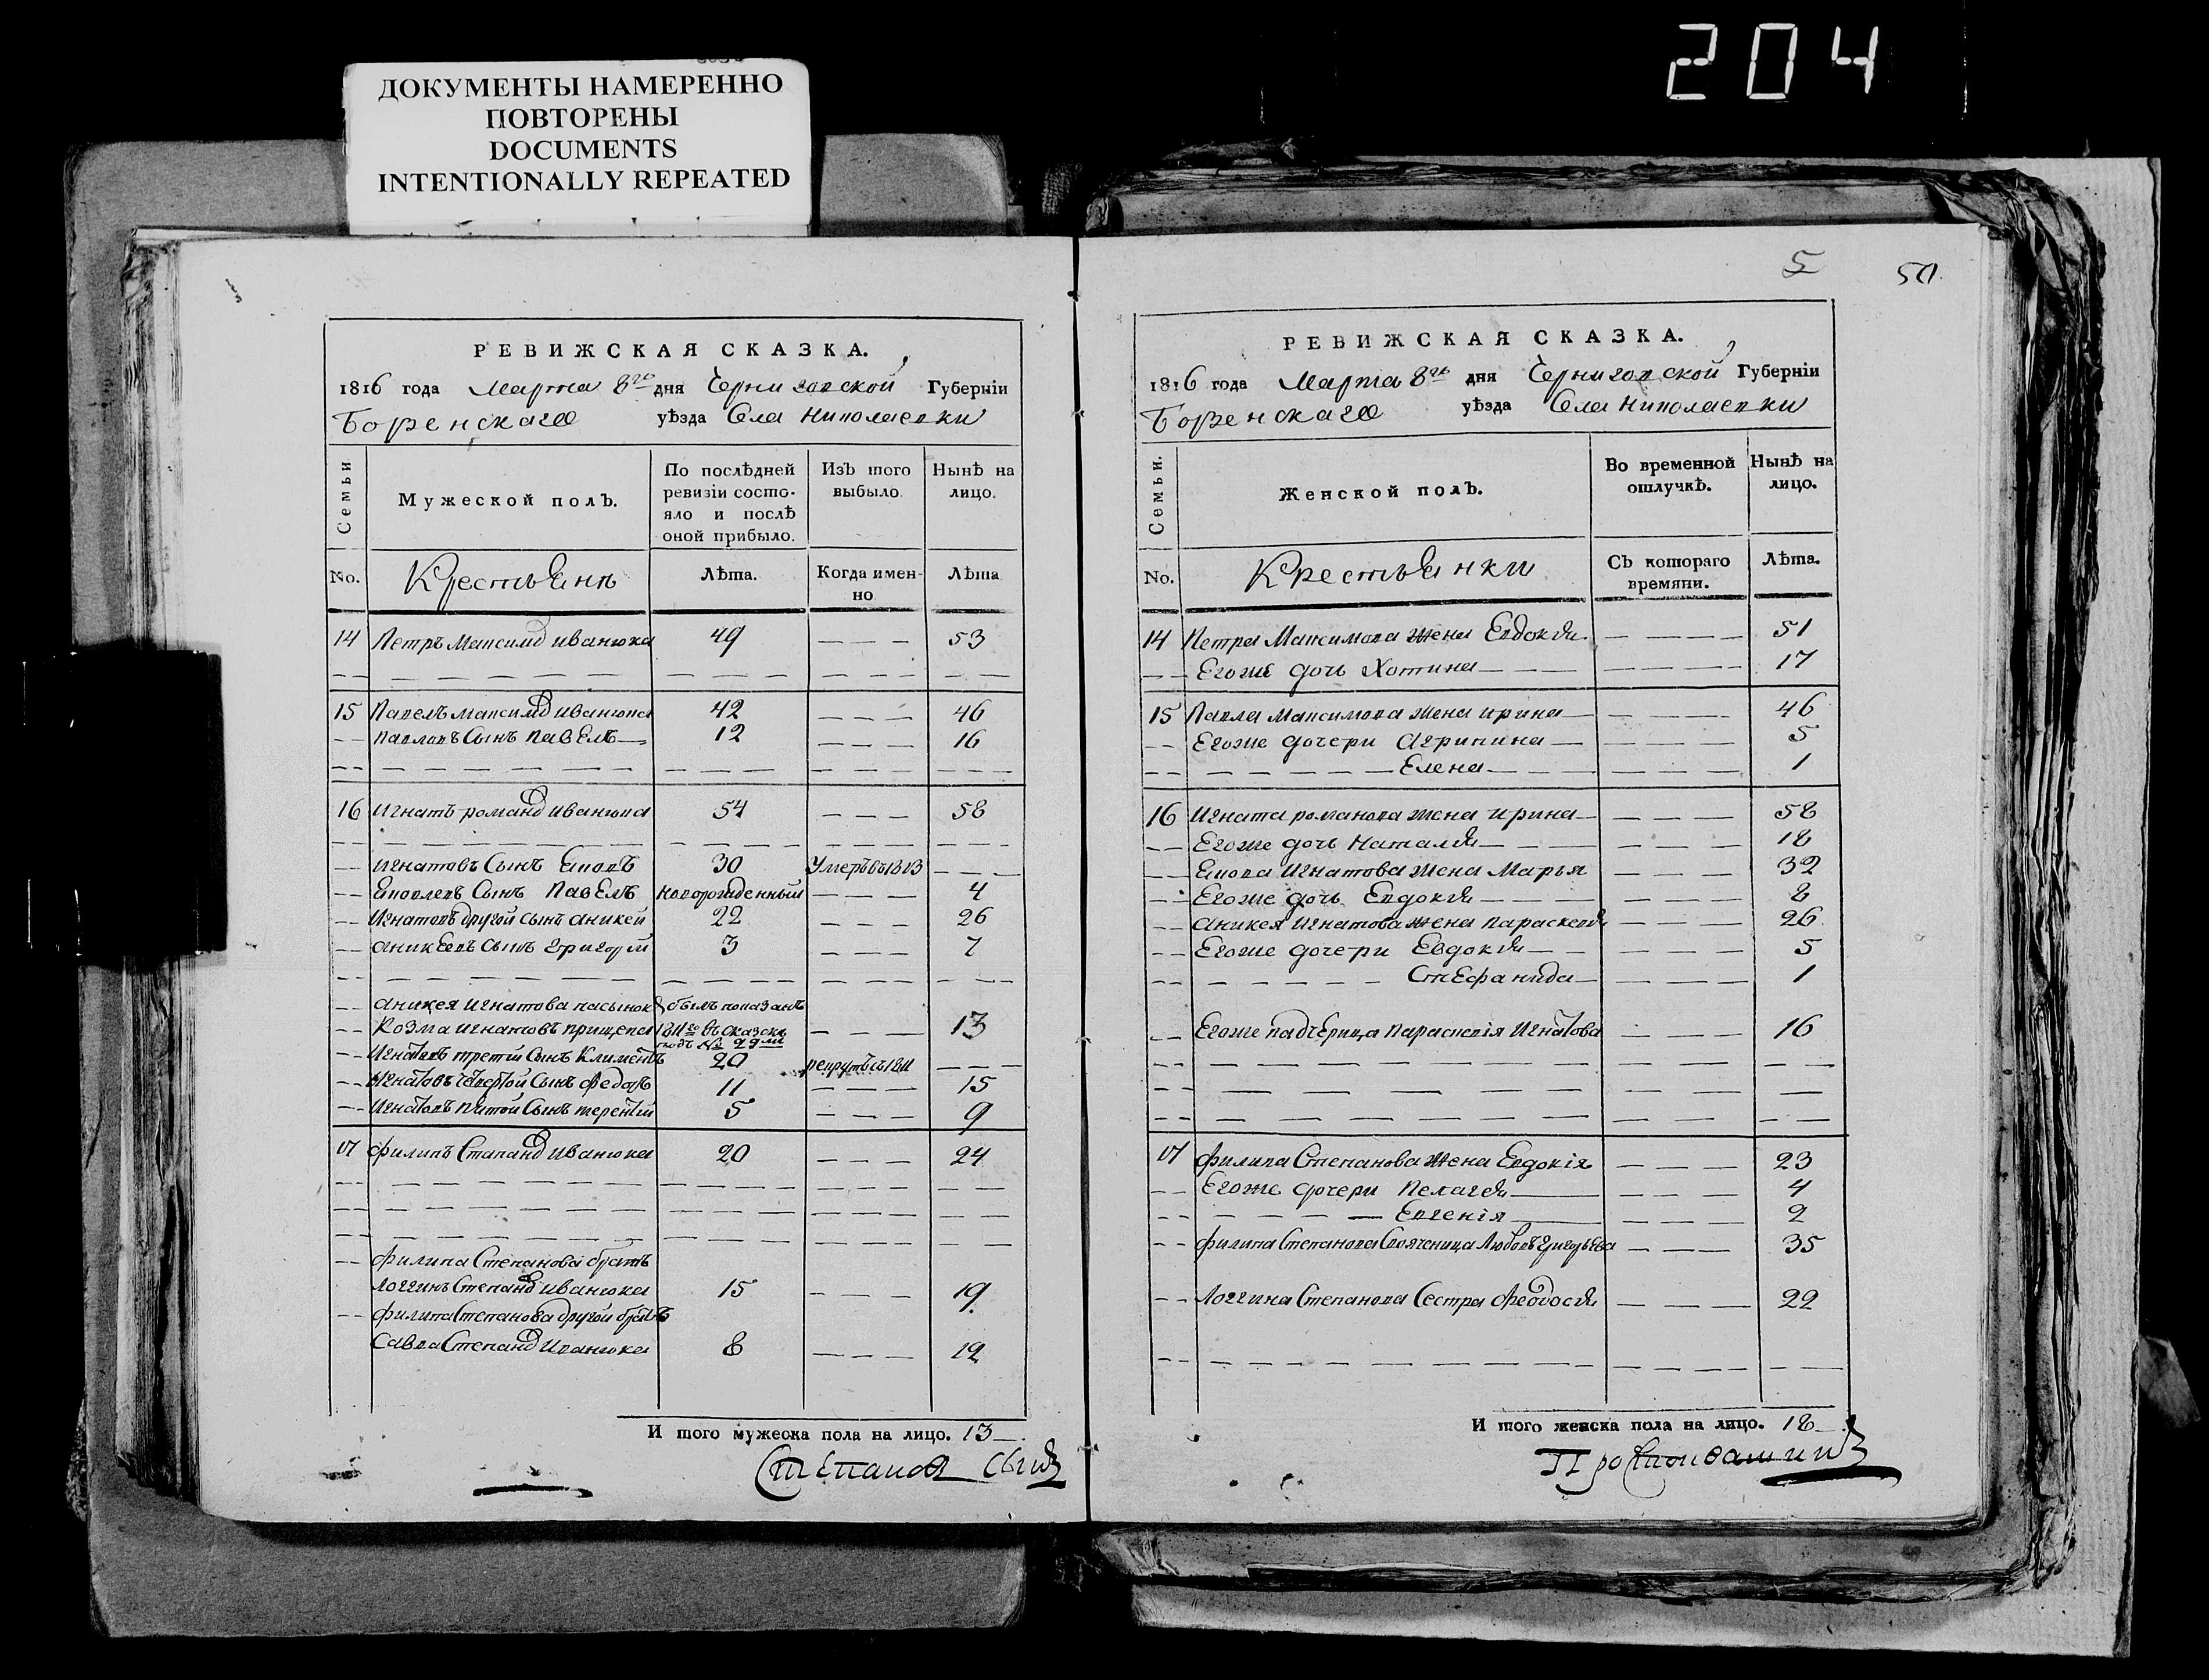 204
ДОКУМЕНТЫ НАМЕРЕННО
ПОВТОРЕНЫ
DOCUMENTS
INTENTIONALLY REPEATED
РЕВИЖСКАЯ СКАЗКА.
1816 года Марта 8го дня Черниговской Губерніи
Борзенскаго уѣзда Села Николаевки
Семьи
Мужеской полъ.
По послѣдней ревизіи состояло и послѣ оной прибыло.
Изъ того выбыло.
Нынѣ на лицо.
No. Крестьянъ Лѣта. Когда именно Лѣта
14 Петръ Максимо Иванюка 49 — — — 53
15 Павелъ Максимо Иванюка 42 — — — 46
— — Павловъ Сынъ Павелъ 12 — — — 16
16 Игнатъ Романо Иванюка 54 — — — 58
— Игнатовъ Сынъ 30 Умеръ въ 1813 — — —
— Сынъ Павелъ новорожденный — — — 4
— Игнатовъ другой сынъ Аникей 22 — — — 26
— Аникеевъ сынъ Григорій 3 — — — 7
— — Аникея Игнатова пасынок былъ показанъ
— — Козма Игнатовъ 1811го въ сказскѣ — — — 13
подъ №
— — Игнатовъ третій Сынъ Климентъ 20 рекрутъ съ 1811 — — —
— — Игнатовъ четвертой Сынъ Федоръ 11 — — — 15
— — Игнатовъ пятой Сынъ Терентій 5 — — — 9
17 Филипъ Степано Иванюка 20 — — — 24
— — Филипа Степанова братъ
Логгинъ Степано Иванюка 15 — — — 19
— — Филипа Степанова другой братъ
Савва Степано Иванюка 8 — — — 12
И того мужеска пола на лицо. 13
Степановъ Сынъ
5 50
РЕВИЖСКАЯ СКАЗКА.
1816 года Марта 8го дня Черниговской Губерніи
Борзенскаго уѣзда Села Николаевки
Семьи.
Женской полъ.
Во временной отлучкѣ.
Нынѣ на лицо.
No. Крестьянки Съ котораго времяни. Лѣта.
14 Петра Максимова жена Евдокія — — — 51
— — Егоже дочь Хотина — — — 17
15 Павла Максимова жена Ирина — — — 46
— — Егоже дочери Агрипина — — — 5
Елена — — — 1
16 Игната Романова жена Ирина — — — 58
— — Егоже дочь Наталія — — — 18
— — Игнатова жена Марья — — — 32
— — Егоже дочь Евдокія — — — 8
— — Аникея Игнатова жена Параскевія — — — 26
— — Егоже дочери Евдокія — — — 5
Стефанида — — — 1
— Егоже падчерица Параскевія Игнатова — — — 16
17 Филипа Степанова жена Евдокія — — — 23
— — Егоже дочери Пелагея — — — 4
Евгенія — — — 2
— — Филипа Степанова Свояченица Любовъ Григорьева — — — 35
— — Логгина Степанова Сестра Феодосія — — — 22
И того женска пола на лицо. 18